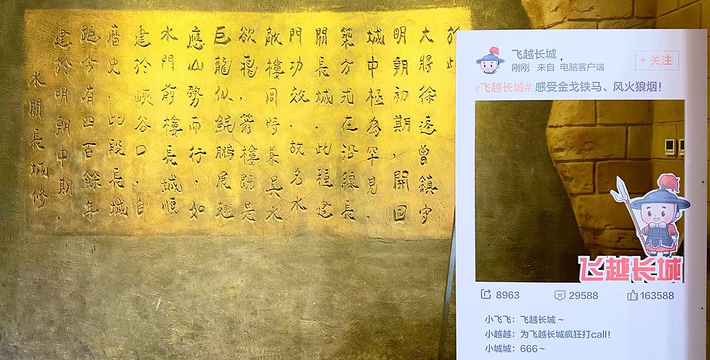 水關長城修
建於明朝中期，
距今有四百餘年
歷史，此段長城
建於峽谷口，自
水門箭樓長城順
應山勢而行，如
巨龍似鯤鵬展翅
欲飛，箭樓既是
敵樓同時兼具水
門功效，故名水
關長城，此種建
築方式在沿線長
城中極為罕見，
明朝初期，開國
大將徐達曾鎮守
於此
飛越长城
刚刚 来自 电脑客户端
+关注
#飞越长城# 感受金戈铁马、风火狼烟！
飞越长城
8963 29588 163588
小飞飞：飞越长城～
小越越：为飞越长城疯狂打call！
小城城：666～